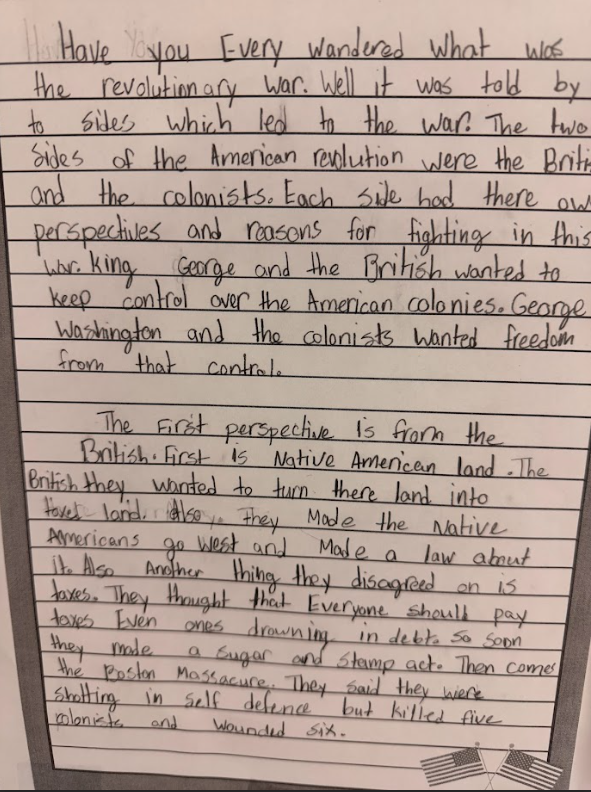 Have you Every wandered what was
the revolutionary war. Well it was told by
to sides which led to the war. The two
sides of the American revolution were the Briti
and the colonists. Each side had there ow
perspectives and reasons for fighting in this
war. King George and the British wanted to
keep control over the American colonies. George
Washington and the colonists wanted freedom
from that control.
The First perspective is from the
British. First is Native American land. The
British they wanted to turn there land into
land. Also, they Made the Native
Americans go West and Made a law about
it. Also Another thing they disagreed on is
taxes. They thought that Everyone should pay
taxes Even ones drowning in debt. So soon
they made a sugar and stamp act. Then comes
the Boston Massacure. They said they were
shotting in self defence but killed five
colonists and wounded six.